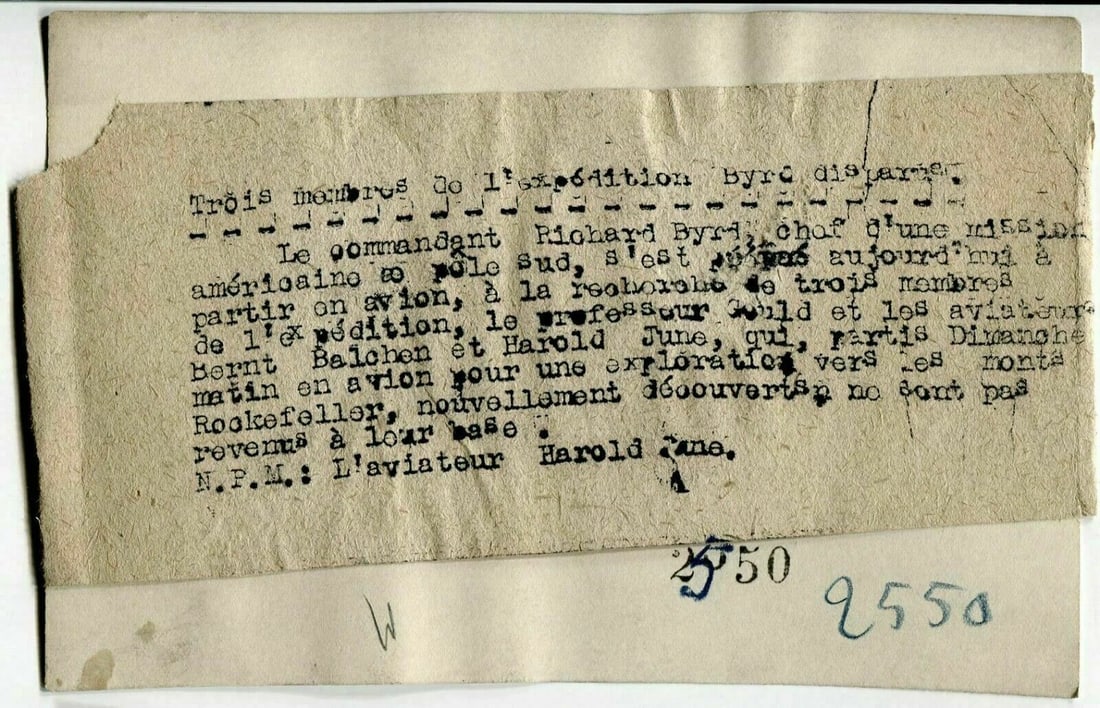 Trois membres de l'expédition Byrd disparus.
Le commandant Richard Byrd, chef d'une mission
américaine au pôle Sud, s'est aujourd'hui à
partir en avion, à la recherche de trois membres
de l'expédition, le professeur Gould et les aviateurs
Bernt Balchen et Harold June, qui, partis Dimanche
matin en avion pour une exploration vers les monts
Rockefeller, nouvellement découverts, ne sont pas
revenus à leur base.
N.P.M.: L'aviateur Harold June.
2550
2550